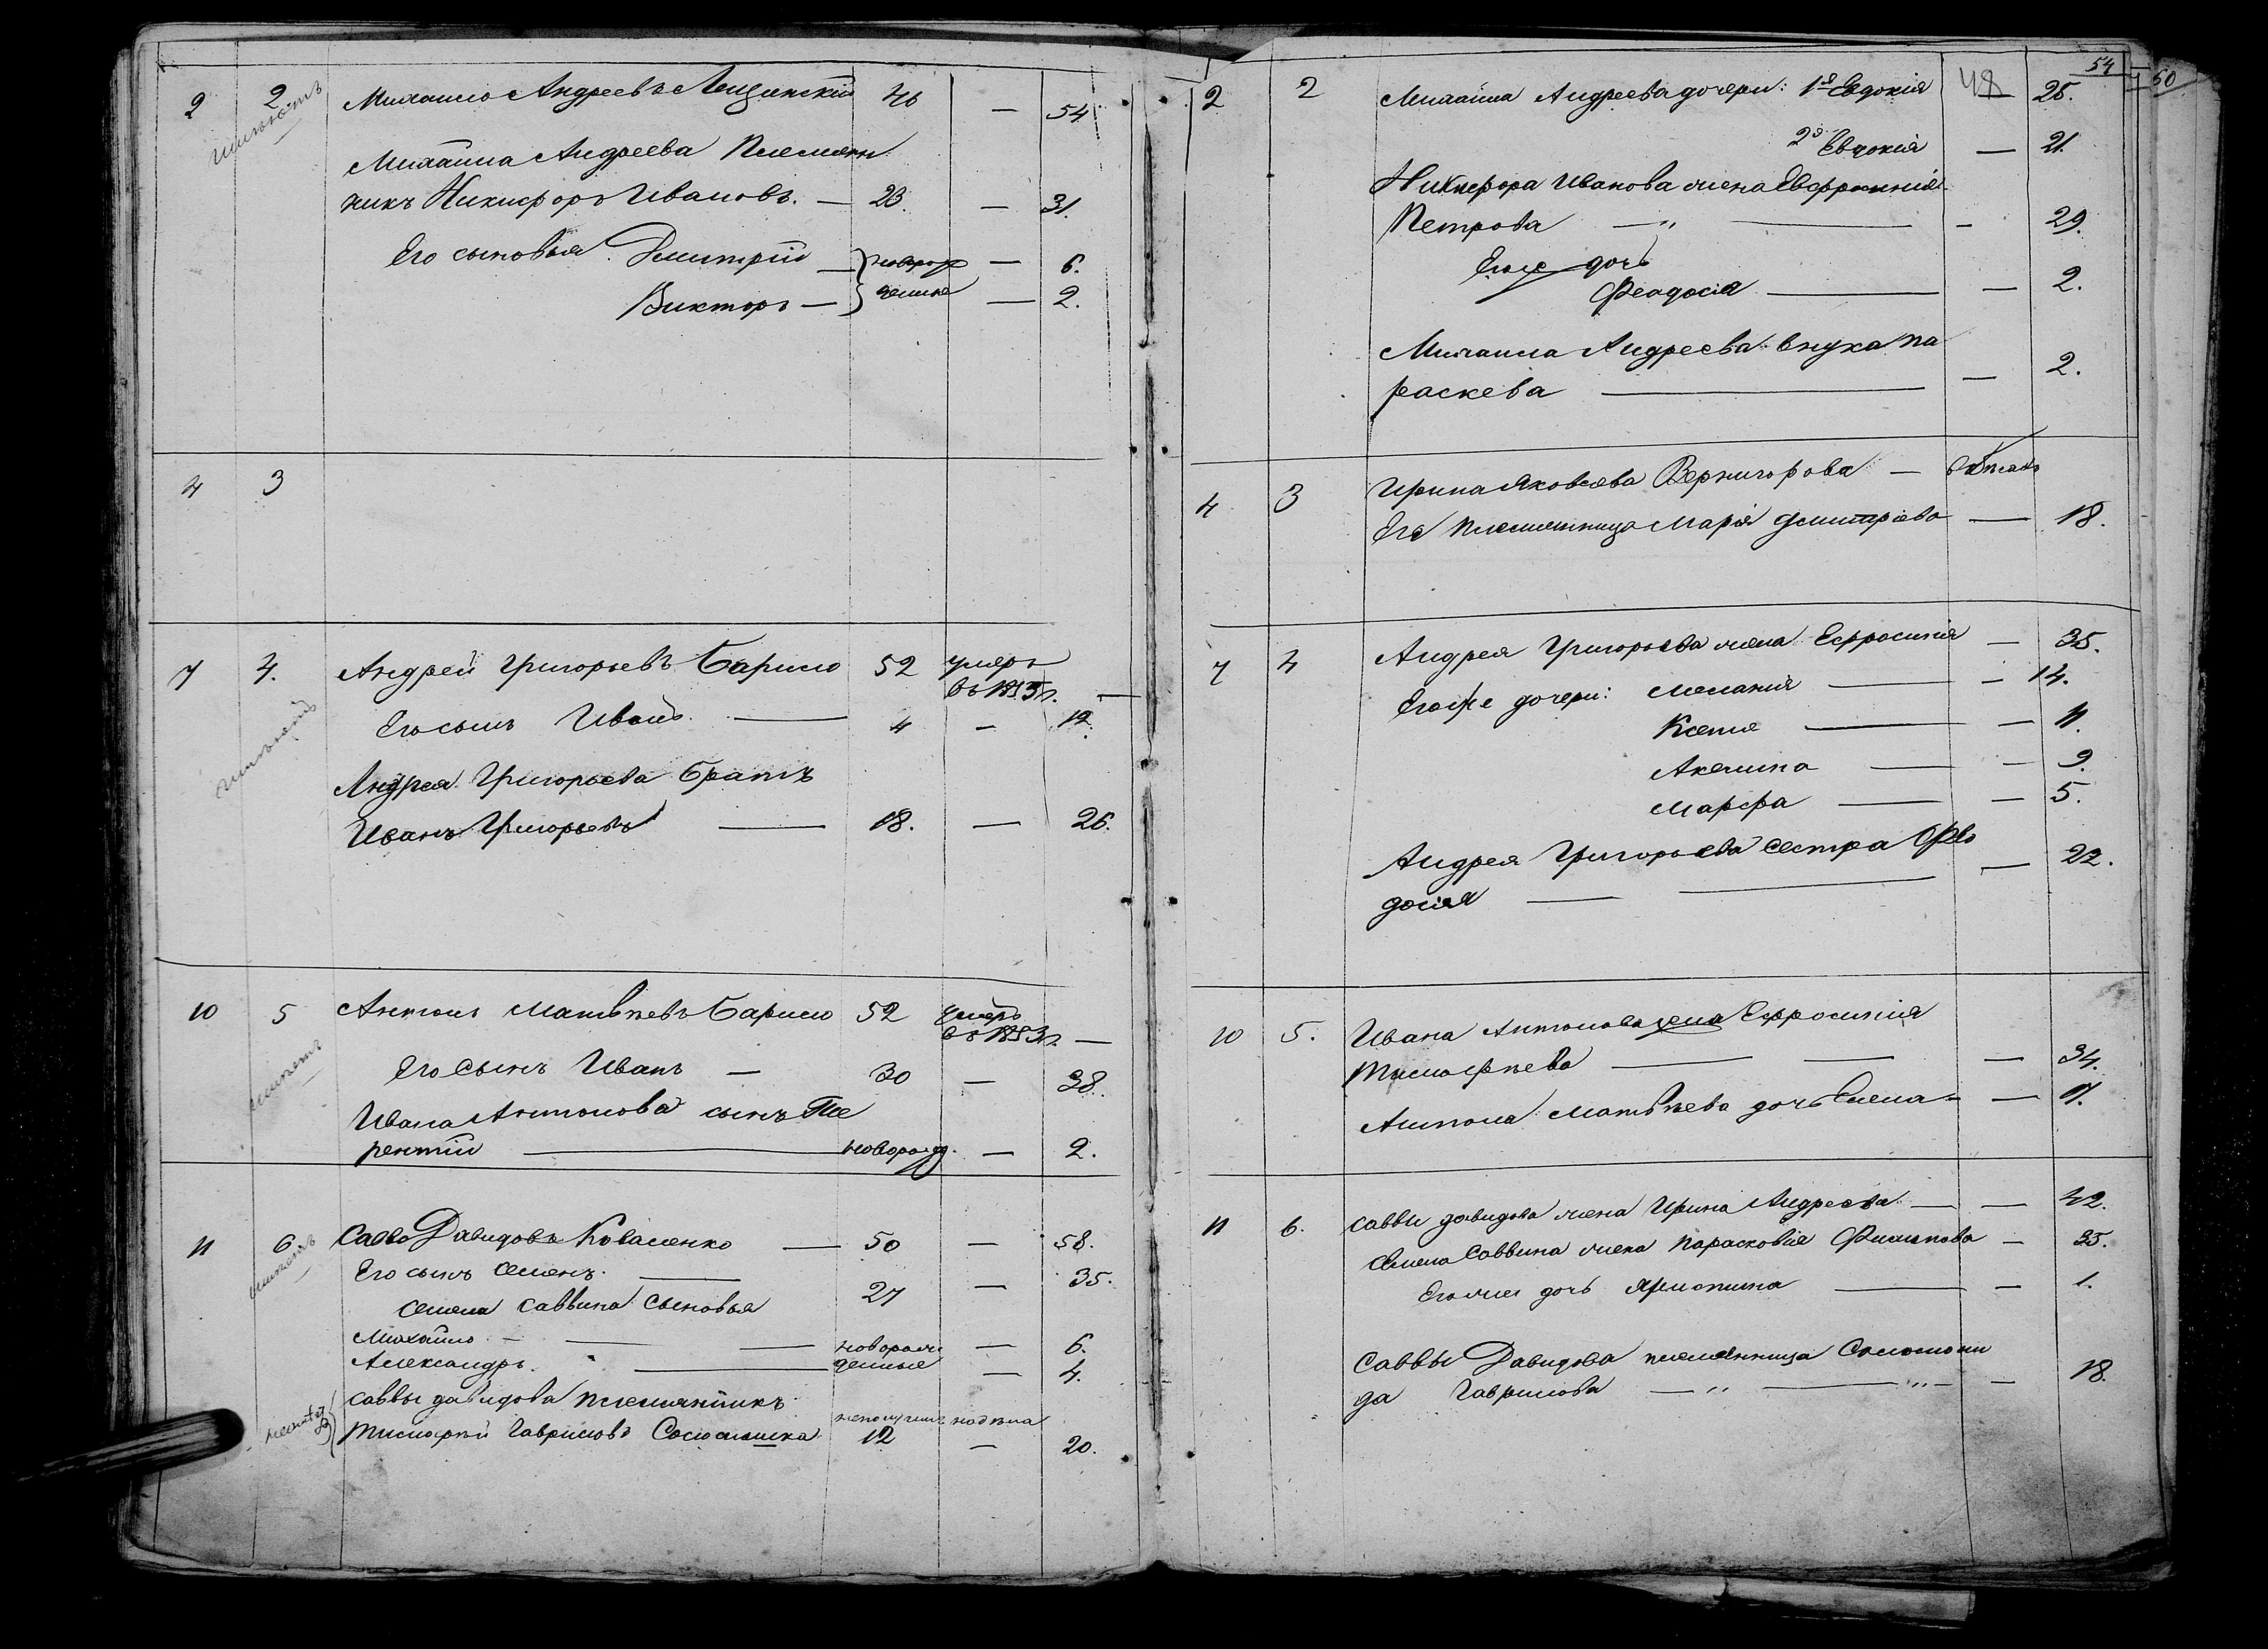 2 2 Михайло Андреевъ Лещинскій 46 — 54
Михайла Андреева Племян
никъ Никифоръ Ивановъ. — 23. — 31.
Его сыновья Дмитрій — новорож — 6.
Викторъ — денные — 2.
4 3
7 4. Андрей Григорьевъ Барило 52 умеръ
въ 1853 г. —
Его сынъ Иванъ. — 4 — 12.
Андрея Григорьева братъ
Иванъ Григорьевъ — 18. — 26.
10 5 Антонъ Матвѣевъ Барило 52 умеръ
въ 1853 г. —
Его сынъ Иванъ — 30 — 38.
Ивана Антонова сынъ Те
рентій — новорожд. — 2.
11 6 Савва Давидовъ Коваленко — 50 — 58.
Его сынъ Семенъ. — 27 — 35.
Семена Саввина сыновья
Михайло — новорож — 6.
Александръ. — денные — 4.
Саввы Давидова племянникъ
Тимофей Гавриловъ 12 — 20.
54 50
48
2 2 Михайла Андреева дочери: 1я Евдокія — 25.
2я Евдокія — 21.
Никифора Иванова жена Евфросинія
Петрова — „ — 29.
Егоже дочь
Феодосія — 2.
Михаила Андреева внука Па
раскева — 2.
4 3 Ирина Яковлева Вернигорова —
Его племянница Марія Дмитріева — 18.
7 4 Андрея Григорьева жена Ефросинія — 35.
Егоже дочери: Меланія — 14.
Ксенія — 11.
Акелина — 9.
Марфа — 5.
Андрея Григорьева сестра Фео
досія — 22.
10 5. Ивана Антонова жена Ефросинія
Тимофѣева — 34.
Антона Матвѣева дочь Елена — 17.
11 6. Саввы Давидова жена Ирина Андреева — 42.
Семена Саввина жена Парасковія Филипова — 35.
Егоже дочь — 1.
Саввы Давидова племянница Соломони
да Гаврилова — „ — „ — 18.